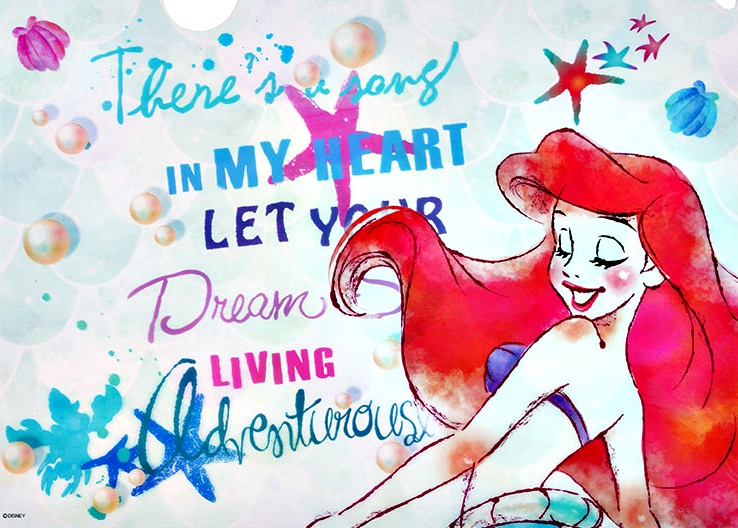 There's a song
IN MY HEART
LET YOUR
Dream S
LIVING
Adventurous
©DISNEY